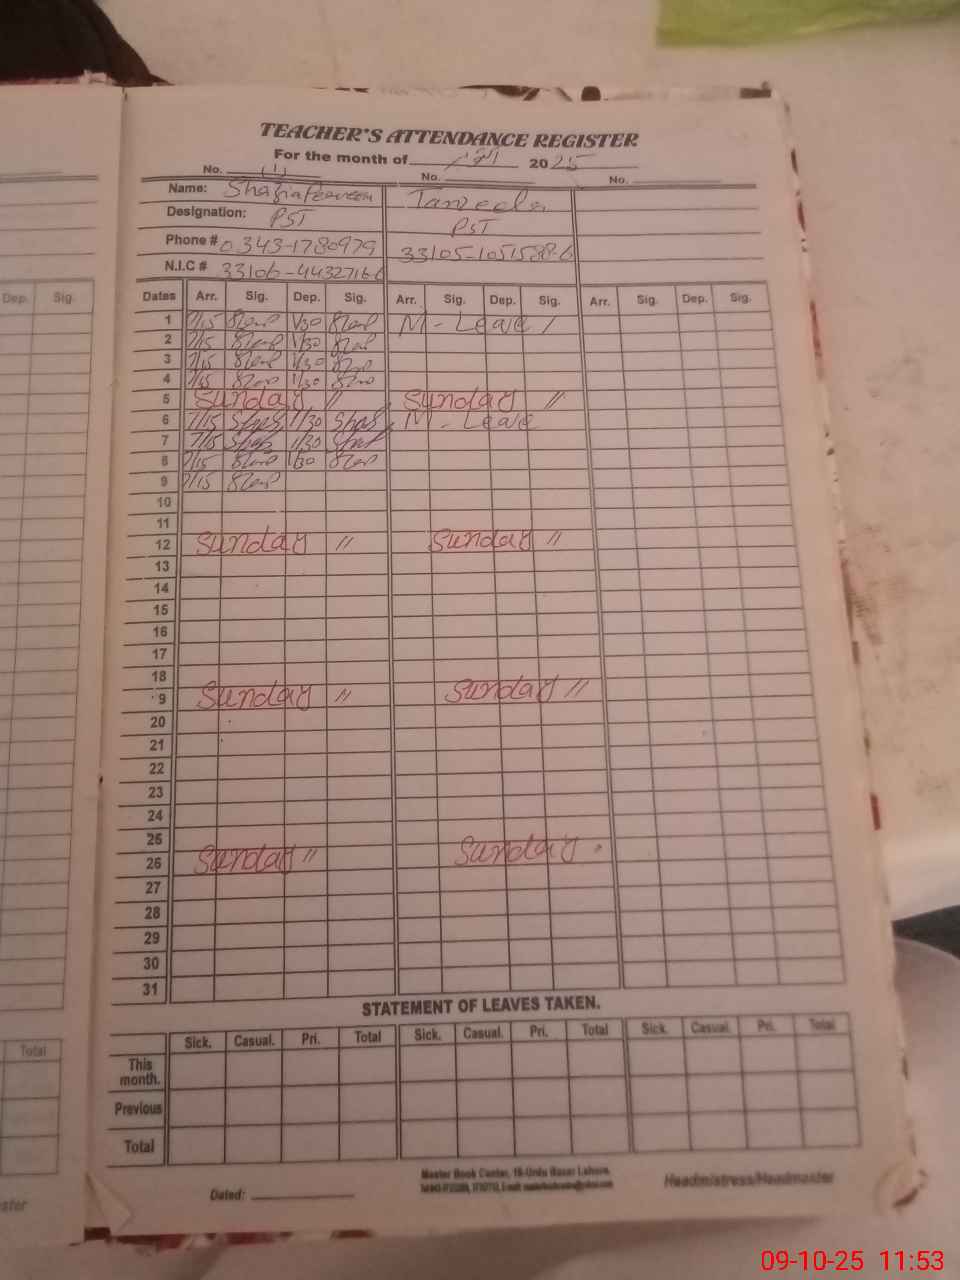 TEACHER'S ATTENDANCE REGISTER
For the month of 2025
No. (1) No. No.
Name: Shazia Perveen Tanveela
Designation: PST PST
Phone # 0343-1780979 33105-1051588-6
N.I.C # 33106-44327166
Dep. Sig. Dates Arr. Sig. Dep. Sig. Arr. Sig. Dep. Sig. Arr. Sig. Dep. Sig.
1 7/15 1/30 M-Leave /
2 7/15 1/30
3 7/15 1/30
4 7/15 1/30
5 Sunday " Sunday "
6 7/15 1/30 M-Leave
7 7/15 1/30
8 7/15 1/30
9 7/15
10
11
12 Sunday " Sunday "
13
14
15
16
17
18
9 Sunday " Sunday "
20
21
22
23
24
25
26 Sunday " Sunday
27
28
29
30
31
STATEMENT OF LEAVES TAKEN.
Total Sick. Casual. Pri. Total Sick. Casual. Pri. Total Sick. Casual. Pri. Total
This month.
Previous
Total
Master Book Center, 19-Urdu Bazar Lahore.
Dated: Headmistress/Headmaster
09-10-25 11:53